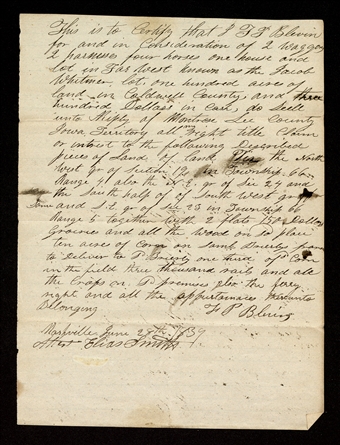 This is to Certify that I F P Blevin
for and in Consideration of 2 Waggons
2 harnesses four horses one house and
lot in Far West known as the Jacob
Whitmer lot, one hundred acres of
land in Caldwell County, and three
hundred Dollars in Care, do Sell
unto Ripley of Montrose Lee County
Iowa Territory all Right title Claim
or intrest to the following Described
pieces of Land the North
West qr of Section 19 in Township 66
Range 4 also the N. E. qr of Sec 24 and
the South half of South West qr
and S E qr of Sec 23 in Township 66
Range 5 together with 2 150 Dollars
and all the wood on Sd place
ten acres of Corn on
to Deliver to one third of Corn
in the field three thousand rails and all
the Crops on Sd premises also the ferry
right and all the appurtenances thereunto
Belonging
F P Blevins
Nashville June 24th 1839
Attest Elias Smith